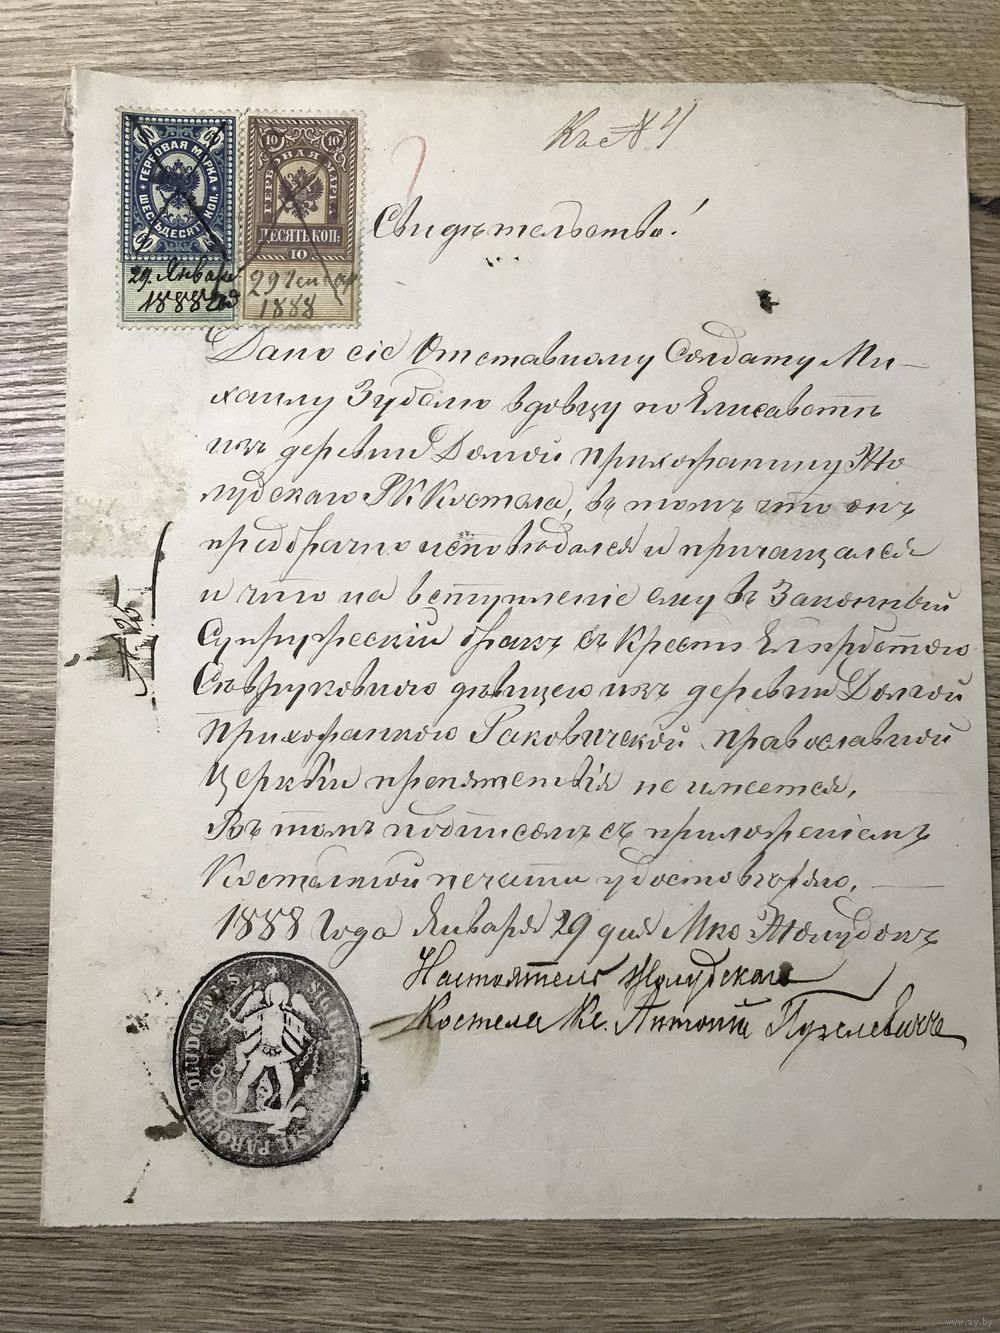 Къ № 4
ГЕРБОВАЯ МАРКА
60 60
ШЕСТЬДЕСЯТЪ КОП.
60 60
29 Января
1888
ГЕРБОВАЯ МАРКА
10 10
ДЕСЯТЬ КОП.
10
29 Генваря
1888
Свидѣтельство!
Дано сіе Отставному Солдату Ми-
хаилу Зубелю вдовцу по Елисаветѣ
изъ деревни Долгой прихожанину Жо
лудскаго РК Костела, въ томъ что онъ
предбрачно исповѣдался и причащался
и что на вступленіе ему въ Законный
Супружескій бракъ съ Крест.
дѣвицею изъ деревни Долгой
Прихожанкою Раковичской Православной
Церкви препятствія не имеется,
Въ томъ подписомъ съ приложеніемъ
Костельной печати удостовѣряю,
1888 Года Января 29 дня Мко Жолудокъ
Настоятель Жолудскаго
Костела Кс. Антоній Пузелевичъ
№ 25